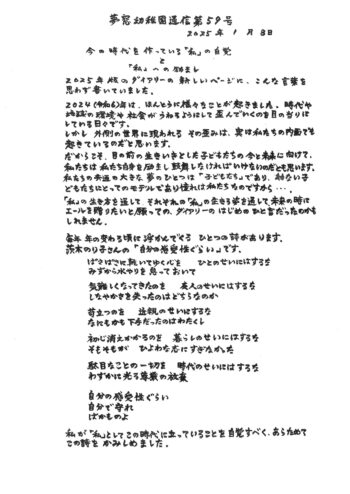 夢窓幼稚園通信第59号
2025年 1月 8日
今の時代を作っている「私」の自覚
と
「私」への励まし
2025年版のダイアリーの新しいページに、こんな言葉を
思わず書いていました。
2024(令和6)年は、ほんとうに様々なことが起きました。時代や
地球の環境や社会がうねるようにして歪んでいくのを目の当りに
している日々です。
しかし外側の世界に現われるその歪みは、実は私たちの内面でも
起きているのだと思います。
だからこそ、目の前の生きいきとした子どもたちの今と未来に向けて、
私たちは私たち自身を励まし鼓舞しなければいけないのだとも思います。
私たちの幸運の大きな夢のひとつは“子どもたち”であり、幼な子
どもたちにとってのモデルであり憧れは私たちなのですから…。
「私」の生き方を通してそれぞれの「私」の在り様を通して、未来の時に
エールを贈りたいと願っての、ダイアリーのはじめのひと言だったのかも
しれません。
毎年 年の変わる頃に浮かんでくる ひとつの詩があります。
茨木のり子さんの「自分の感受性ぐらい」です。
ぱさぱさに乾いてゆく心を ひとのせいにはするな
みずから水やりを怠っておいて
気難しくなってきたのを 友人のせいにはするな
しなやかさを失ったのはどちらなのか
苛立つのを 近親のせいにはするな
なにもかも下手だったのはわたくし
初心消えかかるのを 暮らしのせいにはするな
そもそもが ひよわな志にすぎなかった
駄目なことの一切を 時代のせいにはするな
わずかに光る尊厳の放棄
自分の感受性ぐらい
自分で守れ
ばかものよ
私が「私」としてこの時代に立っていることを自覚すべく、あらためて
この詩をかみしめました。